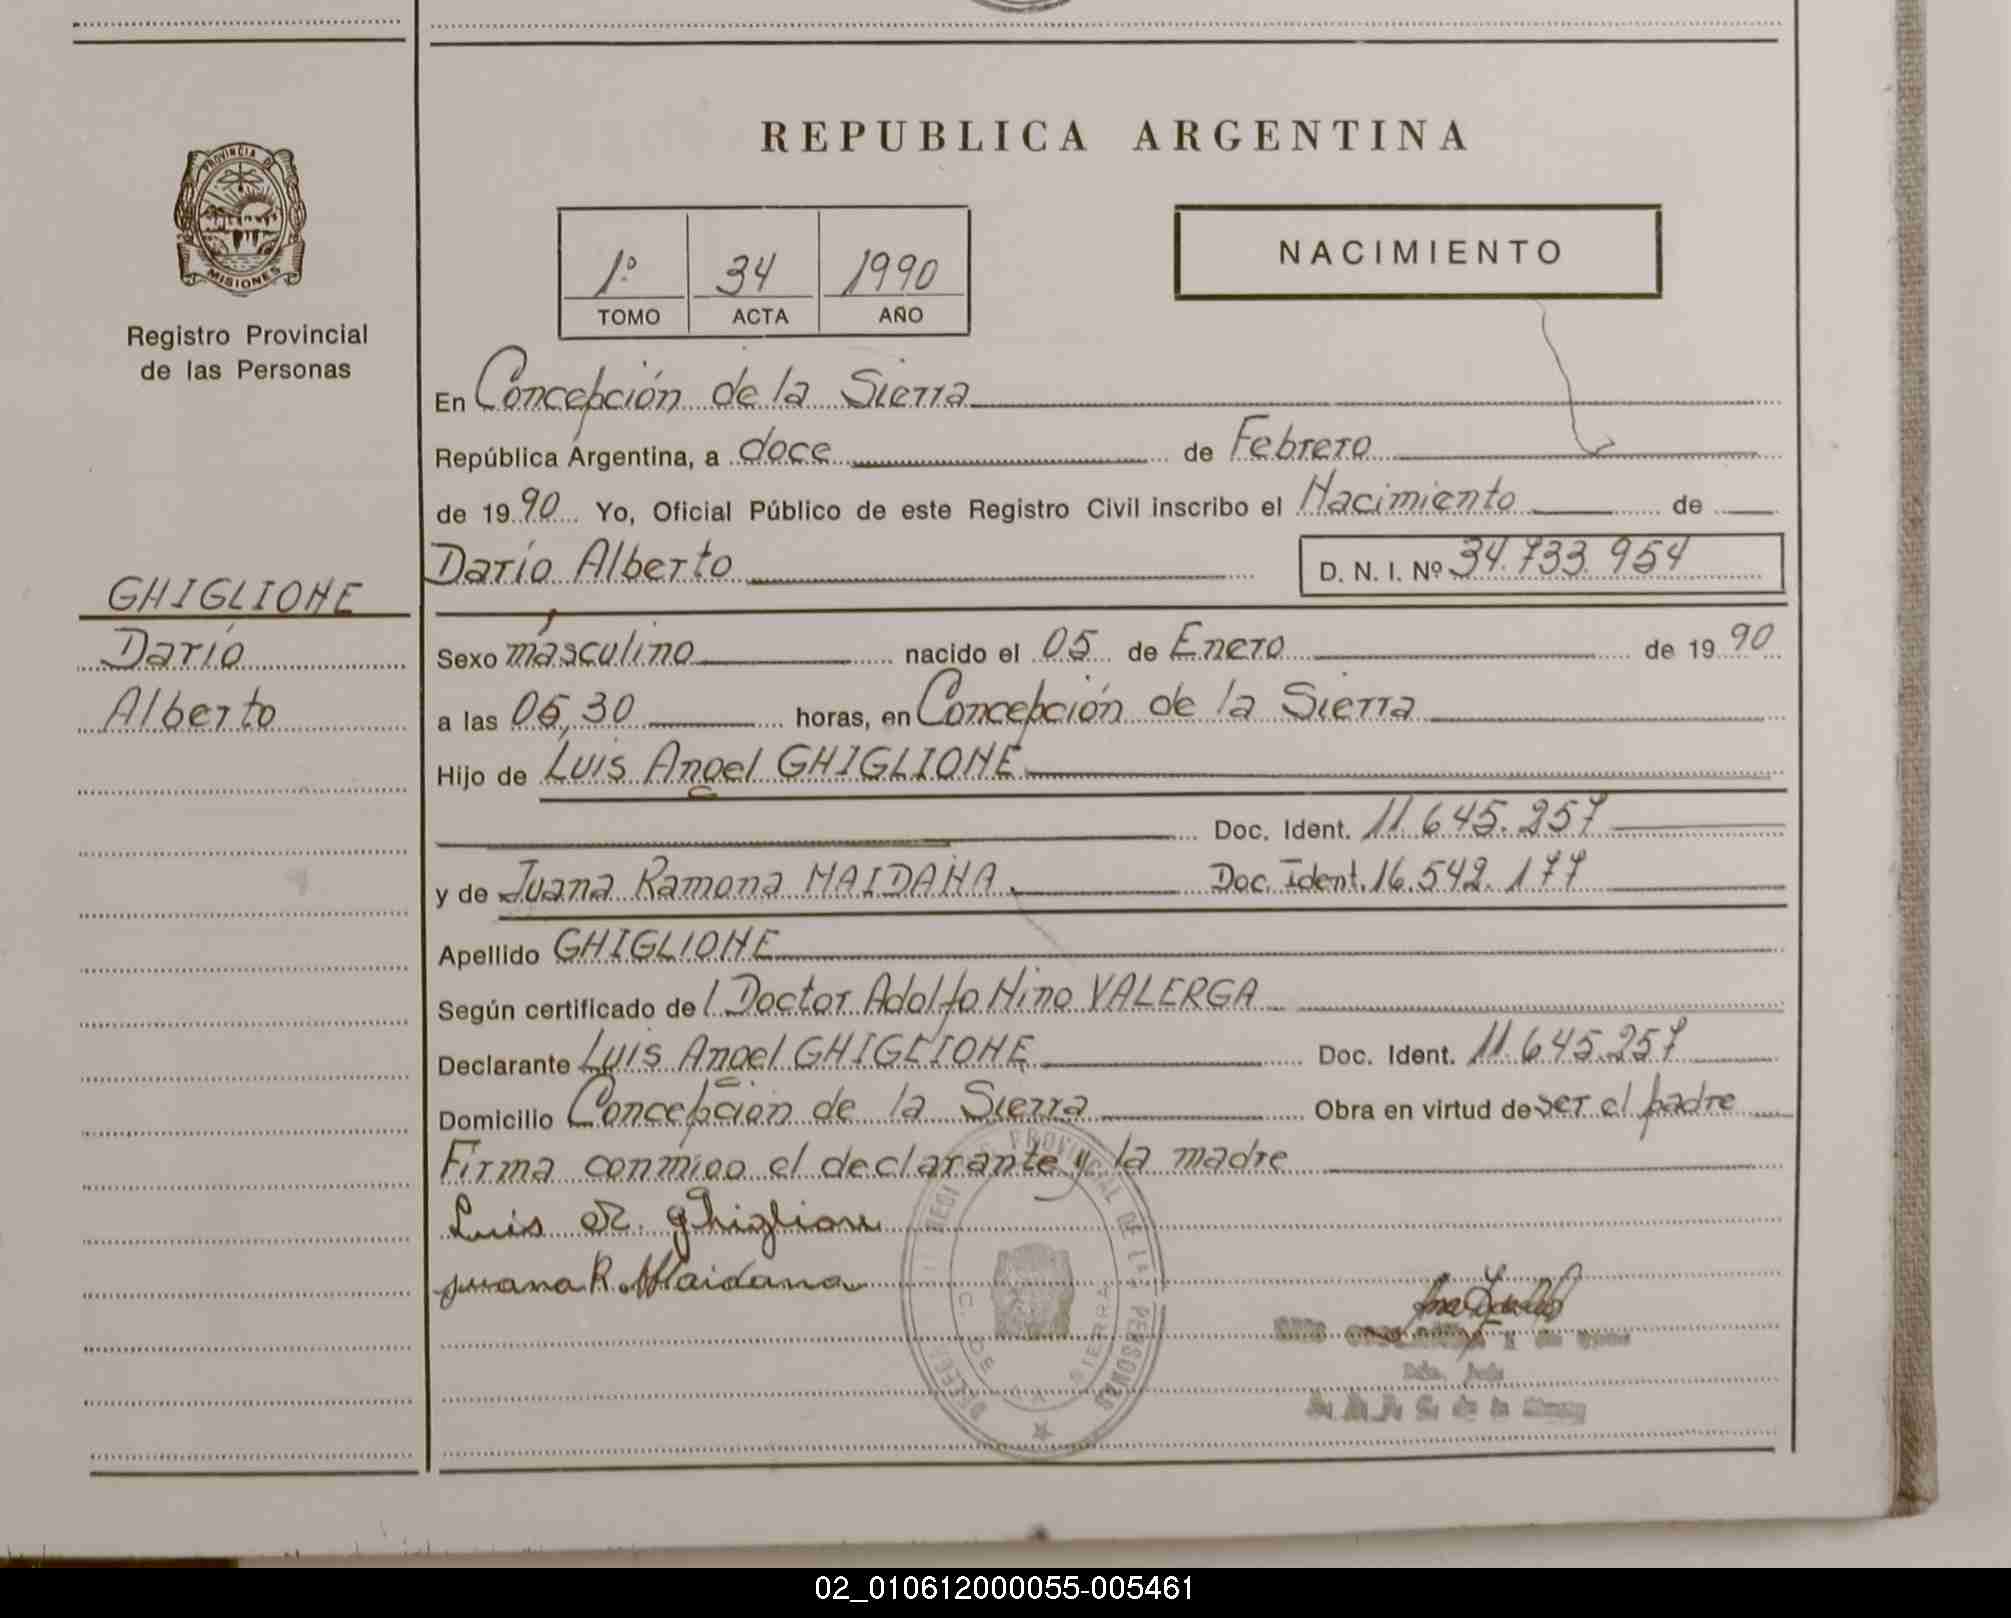 PROVINCIA D
MISIONES
Registro Provincial
de las Personas
GHIGLIONE
Darío
Alberto
REPUBLICA ARGENTINA
1º 34 1990
TOMO ACTA AÑO
NACIMIENTO
En Concepción de la Sierra
República Argentina, a doce de Febrero
de 1990 Yo, Oficial Público de este Registro Civil inscribo el Nacimiento de
Darío Alberto D. N. I. Nº 34.733.954
Sexo másculino nacido el 05 de Enero de 1990
a las 06,30 horas, en Concepción de la Sierra
Hijo de Luis Angel GHIGLIONE
Doc. Ident. 11.645.257
y de Juana Ramona MAIDANA Doc. Ident. 16.542.177
Apellido GHIGLIONE
Según certificado de l Doctor Adolfo Nino VALERGA
Declarante Luis Angel GHIGLIONE Doc. Ident. 11.645.257
Domicilio Concepción de la Sierra Obra en virtud de ser el padre
Firma conmigo el declarante y la madre
Luis A. Ghiglione
Juana R. Maidana
PROVINCIAL DE LAS PERSONAS
C. DE LA SIERRA
02_010612000055-005461